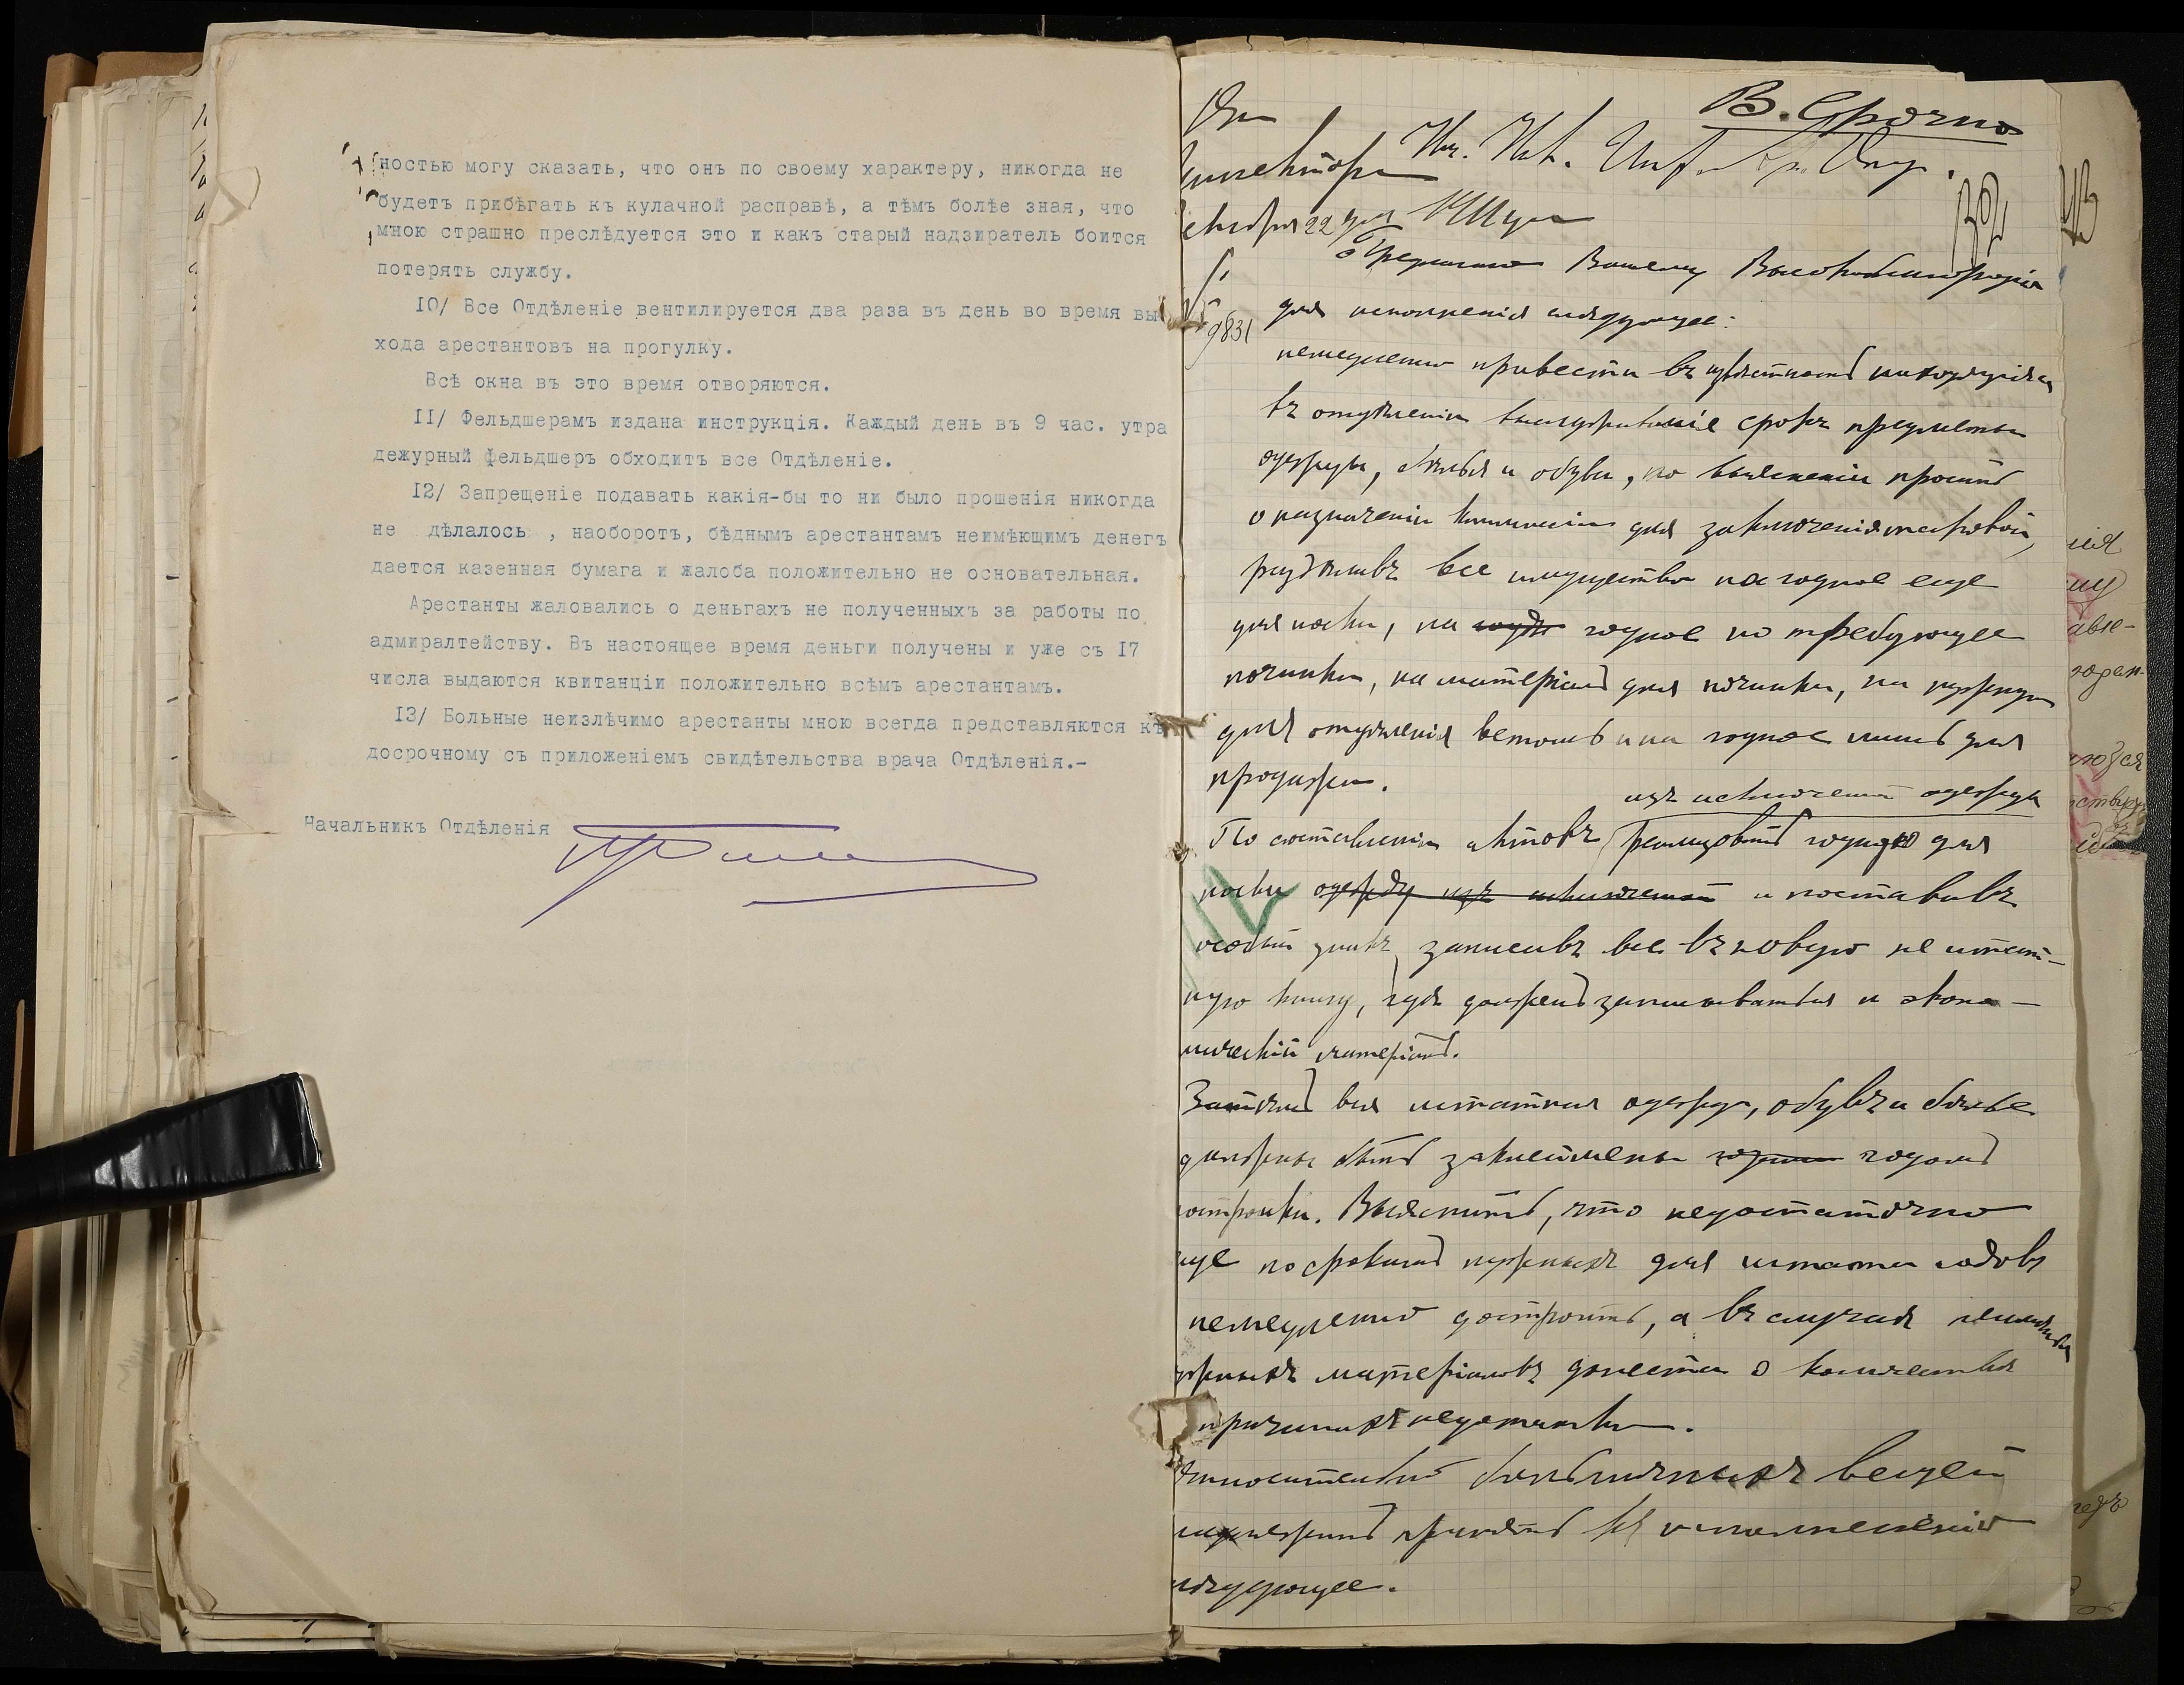 ностью могу сказать, что онъ по своему характеру, никогда не
будетъ прибѣгать къ кулачной расправѣ, а тѣмъ болѣе зная, что
мною страшно преслѣдуется это и какъ старый надзиратель боится
потерять службу.
10/ Все Отдѣленіе вентилируется два раза въ день во время вы
хода арестантовъ на прогулку.
Всѣ окна въ это время отворяются.
11/ Фельдшерамъ издана инструкція. Каждый день въ 9 час. утра
дежурный фельдшеръ обходитъ все Отдѣленіе.
12/ Запрещеніе подавать какія-бы то ни было прошенія никогда
не дѣлалось , наоборотъ, бѣднымъ арестантамъ неимѣющимъ денегъ
дается казенная бумага и жалоба положительно не основательная.
Арестанты жаловались о деньгахъ не полученныхъ за работы по
адмиралтейству. Въ настоящее время деньги получены и уже съ 17
числа выдаются квитанціи положительно всѣмъ арестантамъ.
13/ Больные неизлѣчимо арестанты мною всегда представляются къ
досрочному съ приложеніемъ свидѣтельства врача Отдѣленія.-
Начальникъ Отдѣленія
В. Срочно
22
9831
Предлагаю Вашему Высокоблагородію
для исполненія слѣдующее:
немедленно привести въ извѣстность находящіяся
въ отдѣленіи выслужившіе срокъ предметы
одежды, бѣлья и обуви, по выясненіи просить
о назначеніи комиссіи для заключенія таковой,
раздѣливъ все имущество на годное еще
для носки, на годное но требующее
починки, на матеріалъ для починки, на нужную
для отдѣленія ветошь и на годное лишь для
продажи.
изъ исключенной одежды
По составленіи актовъ реализовать годную для
носки одежду изъ исключенной и поставивъ
особый знакъ, записавъ все въ новую не штат-
ную книгу, гдѣ долженъ записываться и эконо-
мическій матеріалъ.
Затѣмъ вся штатная одежда, обувь и бѣлье
должны быть заклеймены годомъ
постройки. Выяснить, что недостаточно
еще по срокамъ нужныхъ для штата годовъ
немедленно достроить, а въ случаѣ неимѣнія
нужныхъ матеріаловъ донести о количествѣ
и причинахъ недостатка.
Относительно больничныхъ вещей
надлежитъ принять къ исполненію
слѣдующее.